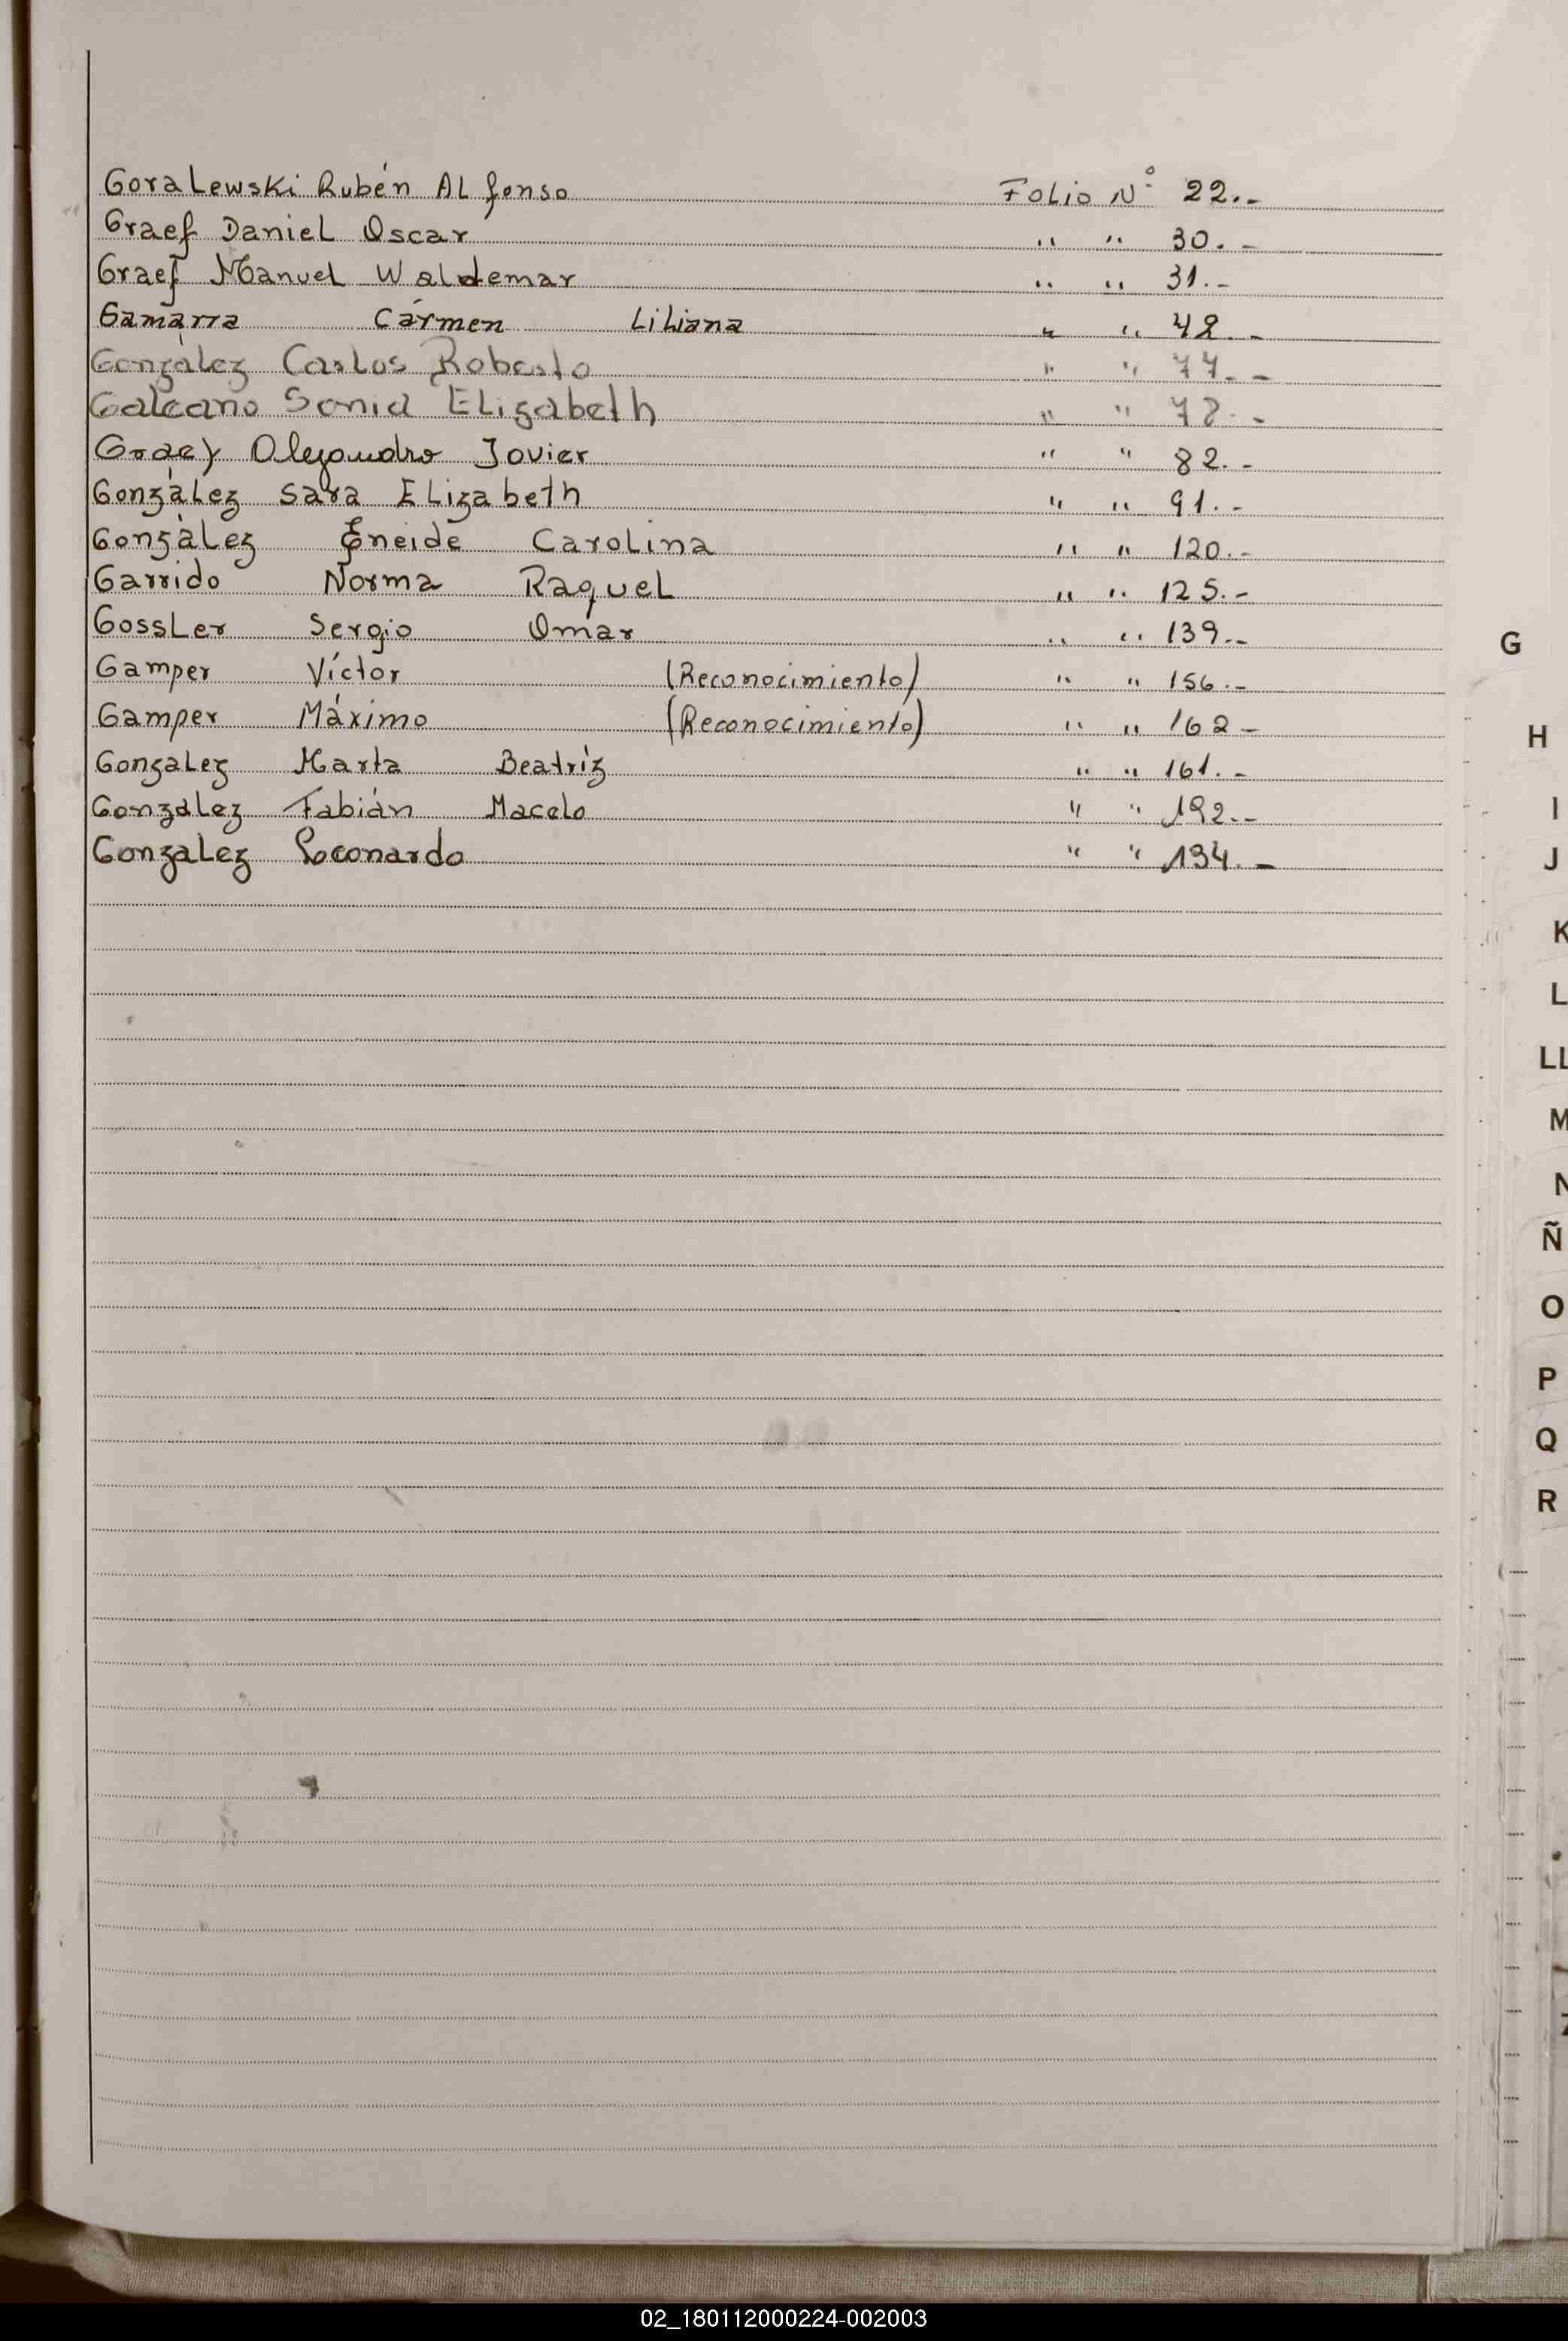 Goralewski Rubén Alfonso Folio Nº 22.-
Graef Daniel Oscar " " 30.-
Graef Manuel Waldemar " " 31.-
Gamarra Cármen Liliana " " 42.-
González Carlos Roberto " " 77.-
Galeano Sonia Elizabeth " " 78.-
Graef Alejandro Javier " " 82.-
González Sara Elizabeth " " 91.-
González Eneide Carolina " " 120.-
Garrido Norma Raquel " " 125.-
Gossler Sergio Omar " " 139.-
Gamper Víctor (Reconocimiento) " " 156.-
Gamper Máximo (Reconocimiento) " " 162-
Gonzalez Marta Beatríz " " 161.-
González Fabián Macelo " " 192.-
Gonzalez Leonardo " " 194.-
G
H
I
J
K
L
LL
M
N
Ñ
O
P
Q
R
02_180112000224-002003